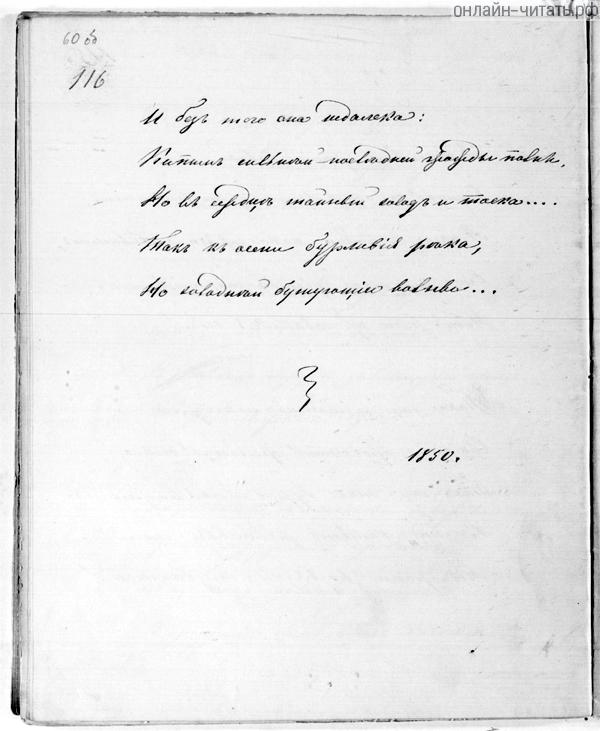 онлайн-читать.рф
60 об
116
И безъ того она недалека:
Кипимъ сильнѣй, послѣдней жажды полны,
Но въ сердцѣ тайный холодъ и тоска....
Такъ къ осени бурливѣе рѣка,
Но холоднѣй бушующія волны...
1850.